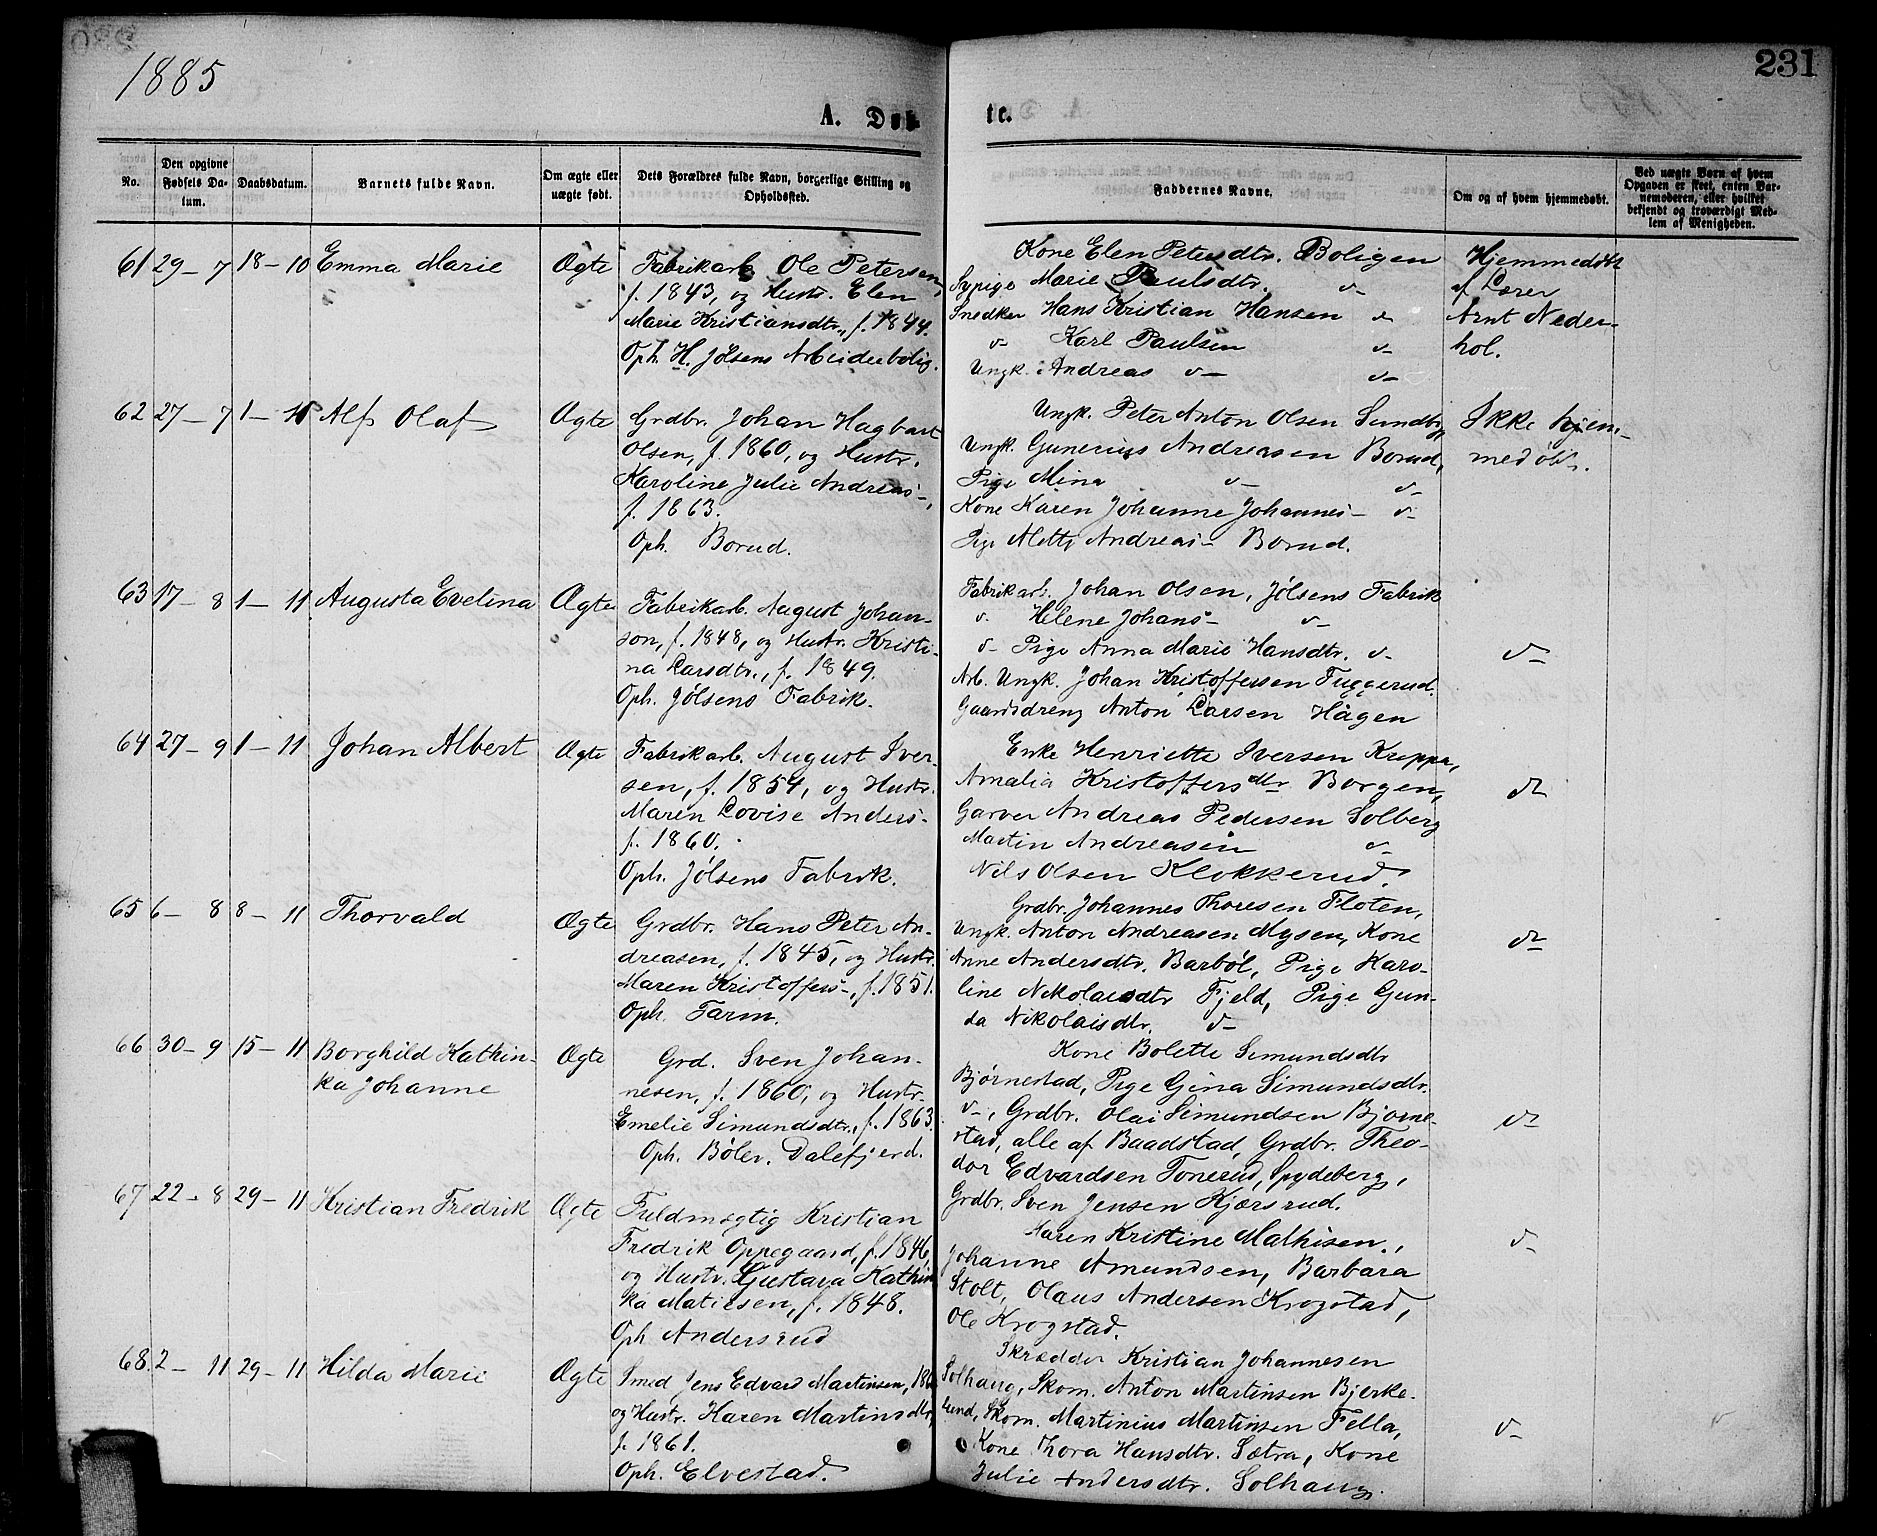 1885
231
A. Døb-
te.
No.
Den opgivne Fødsels Datum.
Daabsdatum.
Barnets fulde Navn.
Om ægte eller uægte født.
Dets Forældres fulde Navn, borgerlige Stilling og Opholdssted.
Faddernes Navne.
Om og af hvem hjemmedøbt.
Ved uægte Børn af hvem Opgaven er skeet, enten Barnemoderen, eller hvilket bekjendt og troværdigt Medlem af Menigheden.
61 29 - 7 18 - 10 Emma Marie Ægte
Fabrikarb. Ole Petersen,
f. 1843, og Hustr. Elen
Marie Kristiansdtr., f. 1844.
Oph. H. Jølsens Arbeiderbolig.
Kone Elen Petersdtr. Boligen
Sypige Marie Paulsdtr. v-
Snedker Hans Kristian Hansen v-
v- Karl Paulsen v-
Ungk. Andreas v- v-
Hjemmedøbt
af Lærer
Arnt Neder-
hol.
62 27 - 7 1 - 11 Alf Olaf Ægte
Grdbr. Johan Hagbart
Olsen, f. 1860, og Hustr.
Karoline Julie Andreas-,
f. 1863.
Oph. Borud.
Ungk. Peter Anton Olsen Sundby,
Ungk. Gunerius Andreasen Borud,
Pige Mina v- v-
Kone Karen Johanne Johannes- v-
Pige Alette Andreas- Borud.
Ikke hjem-
medøbt.
63 17 - 8 1 - 11 Augusta Evelina Ægte
Fabrikarb. August Johan-
son, f. 1848, og Hustr. Kristi-
na Larsdtr., f. 1849.
Oph. Jølsens Fabrik.
Fabrikarb. Johan Olsen, Jølsens Fabrik
v. Helene Johans- v-
v- Pige Anna Marie Hansdtr. v-
Arb. Ungk. Johan Kristoffersen Tuggerud.
Gaardsdreng Anton Larsen Hagen
v-
64 27 - 9 1 - 11 Johan Albert Ægte
Fabrikarb. August Iver-
sen, f. 1854, og Hustr.
Maren Lovise Anders-
f. 1860.
Oph. Jølsens Fabrik.
Enke Henriette Iversen Kroppa,
Amalia Kristoffersdtr Borgen,
Garver Andreas Pedersen Solberg
Martin Andreasen v-
Nils Olsen Klokkerud.
v-
65 6 - 8 8 - 11 Thorvald Ægte
Grdbr. Hans Peter An-
dreasen, f. 1845, og Hustr.
Maren Kristoffers-, f. 1851.
Oph. Tarm.
Grdbr. Johannes Thoresen Floten,
Ungk. Anton Andreasen Mysen, Kone
Anne Andersdtr. Barbøl, Pige Karo-
line Nikolaisdtr Fjeld, Pige Gun-
da Nikolaisdtr. v-
v-
66 30 - 9 15 - 11 Borghild Kathin-
ka Johanne Ægte
Grd. Sven Johan-
nesen, f. 1860, og Hustr.
Emelie Simundsdtr., f. 1863.
Oph. Bøler. Dalefjerd.
Kone Bolette Simundsdtr
Bjørnestad, Pige Gina Simundsdtr.
v-, Grdbr. Olai Simundsen Bjørne-
stad, alle af Baadstad, Grdbr. Theo-
dor Edvardsen Tonerud, Spydeberg,
Grdbr. Sven Jensen Kjærsrud.
v-
67 22 - 8 29 - 11 Kristian Fredrik Ægte
Fuldmægtig Kristian
Fredrik Oppegaard, f. 1846,
og Hustr. Gustava Kathin
ka Matiesen, f. 1848.
Oph Andersrud
Maren Kristine Mathisen,
Johanne Amundsen, Barbara
Stolt, Olaus Andersen Krogstad,
Ole Krogstad.
v-
68. 2 - 11 29 - 11 Hilda Marie Ægte
Smed Jens Edvard Martinsen,
og Hustr. Karen Martinsdtr,
f. 1861.
Oph. Elvestad.
Skrædder Kristian Johannesen
Solhaug, Skom. Anton Martinsen Bjerke-
lund, Skom. Martinius Martinsen Fella,
Kone Thora Hansdtr. Sætra, Kone
Julie Andersdtr. Solhaug.
v-